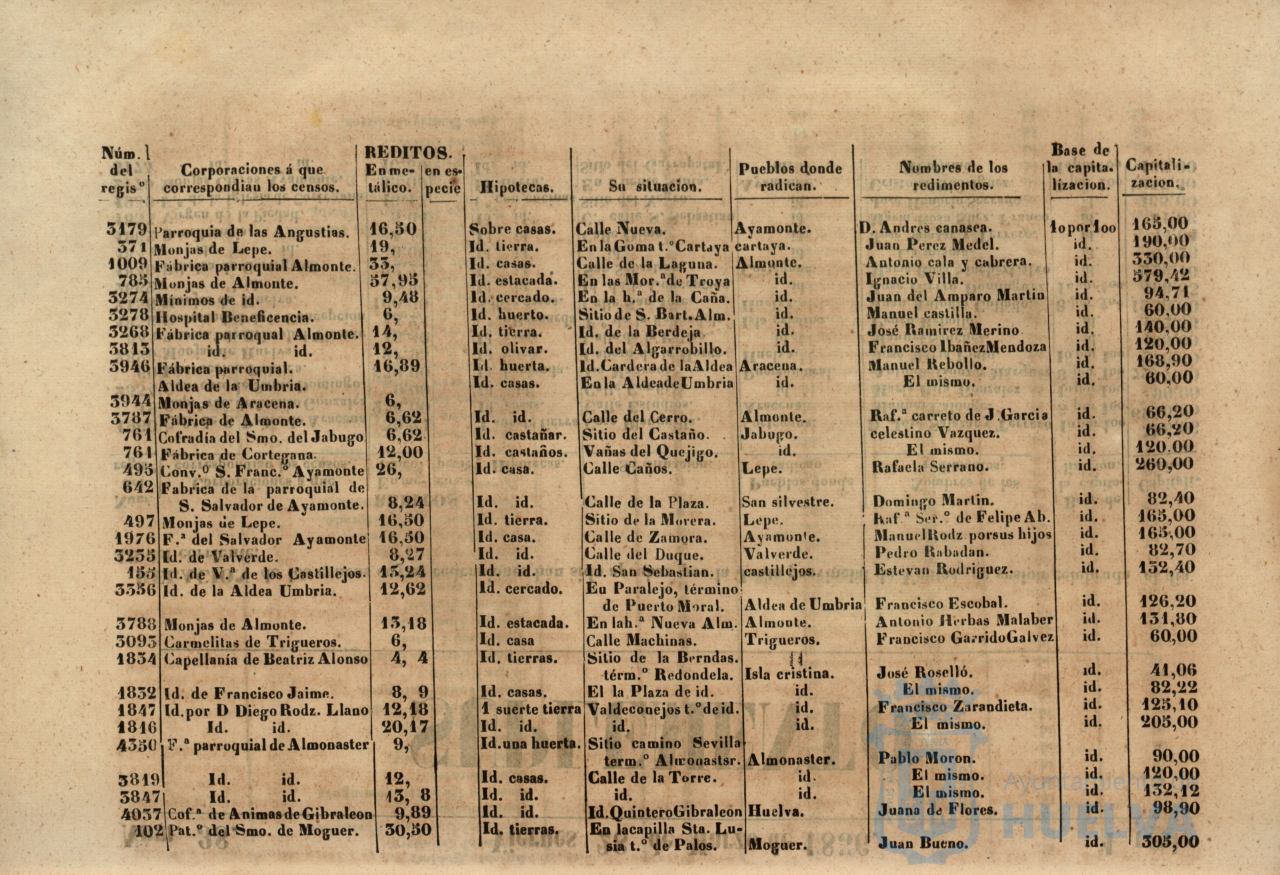 Núm. del regisº Corporaciones á que correspondian los censos. REDITOS. En metálico. en especie Hipotecas. Su situacion. Pueblos donde radican. Nombres de los redimentos. Base de la capitalizacion. Capitalizacion.
3179 Parroquia de las Angustias. 16,50 Sobre casas. Calle Nueva. Ayamonte. D. Andres canasea. 1o por 1oo 165,00
371 Monjas de Lepe. 19, Id. tierra. En la Goma t.º Cartaya cartaya. Juan Perez Medel. id. 190,00
1009 Fábrica parroquial Almonte. 33, Id. casas. Calle de la Laguna. Almonte. Antonio cala y cabrera. id. 330,00
785 Monjas de Almonte. 57,95 Id. estacada. En las Mor.ª de Troya id. Ignacio Villa. id. 579,42
3274 Mínimos de id. 9,48 Id. cercado. En la h.ª de la Caña. id. Juan del Amparo Martin id. 94,71
3278 Hospital Beneficencia. 6, Id. huerto. Sitio de S. Bart. Alm. id. Manuel castilla. id. 60,00
3268 Fábrica parroqual Almonte. 14, Id. tierra. Id. de la Berdeja id. José Ramirez Merino id. 140,00
3813 id. id. 12, Id. olivar. Id. del Algarrobillo. id. Francisco Ibañez Mendoza id. 120,00
3946 Fábrica parroquial. 16,89 Id. huerta. Id. Cardera de la Aldea Aracena. Manuel Rebollo. id. 168,90
Aldea de la Umbria. Id. casas. En la Aldea de Umbria id. El mismo. id. 60,00
3944 Monjas de Aracena. 6,
3787 Fábrica de Almonte. 6,62 Id. id. Calle del Cerro. Almonte. Raf.ª carreto de J. Garcia id. 66,20
761 Cofradía del Smo. del Jabugo 6,62 Id. castañar. Sitio del Castaño. Jabugo. celestino Vazquez. id. 66,20
761 Fábrica de Cortegana. 12,00 Id. castaños. Vañas del Quejigo. id. El mismo. id. 120.00
495 Conv.º S. Franc.º Ayamonte 26, Id. casa. Calle Caños. Lepe. Rafaela Serrano. id. 260,00
642 Fabrica de la parroquial de
S. Salvador de Ayamonte. 8,24 Id. id. Calle de la Plaza. San silvestre. Domingo Martin. id. 82,40
497 Monjas de Lepe. 16,50 Id. tierra. Sitio de la Morera. Lepe. Raf ª Ser.º de Felipe Ab. id. 165,00
1976 F.ª del Salvador Ayamonte 16,50 Id. casa. Calle de Zamora. Ayamonte. Manuel Rodz por sus hijos id. 165,00
3235 Id. de Valverde. 8,27 Id. id. Calle del Duque. Valverde. Pedro Rabadan. id. 82,70
155 Id. de V.ª de los Castillejos. 13,24 Id. id. Id. San Sebastian. castillejos. Estevan Rodriguez. id. 132,40
3336 Id. de la Aldea Umbria. 12,62 Id. cercado. En Paralejo, término
de Puerto Moral. Aldea de Umbria Francisco Escobal. id. 126,20
3788 Monjas de Almonte. 13,18 Id. estacada. En la h.ª Nueva Alm. Almonte. Antonio Herbas Malaber id. 131,80
3093 Carmelitas de Trigueros. 6, Id. casa Calle Machinas. Trigueros. Francisco Garrido Galvez id. 60,00
1834 Capellanía de Beatriz Alonso 4, 4 Id. tierras. Sitio de la Berndas.
térm.º Redondela. Isla cristina. José Roselló. id. 41,06
1832 Id. de Francisco Jaime. 8, 9 Id. casas. El la Plaza de id. id. El mismo. id. 82,22
1847 Id. por D Diego Rodz. Llano 12,18 1 suerte tierra Valdeconejos t.º de id. id. Francisco Zarandieta. id. 125,10
1816 Id. id. 20,17 Id. id. id. id. El mismo. id. 205,00
4350 F.ª parroquial de Almonaster 9, Id. una huerta. Sitio camino Sevilla
term.º Almonastsr. Almonaster. Pablo Moron. id. 90,00
3819 Id. id. 12, Id. casas. Calle de la Torre. id. El mismo. id. 120,00
3847 Id. id. 13, 8 Id. id. id. id. El mismo. id. 132,12
4037 Cof.ª de Animas de Gibraleon 9,89 Id. id. Id. Quintero Gibraleon Huelva. Juana de Flores. id. 98,90
102 Pat.º del Smo. de Moguer. 30,50 Id. tierras. En la capilla Sta. Lu-
sia t.º de Palos. Moguer. Juan Bueno. id. 305,00
Ayuntamiento
HUELVA